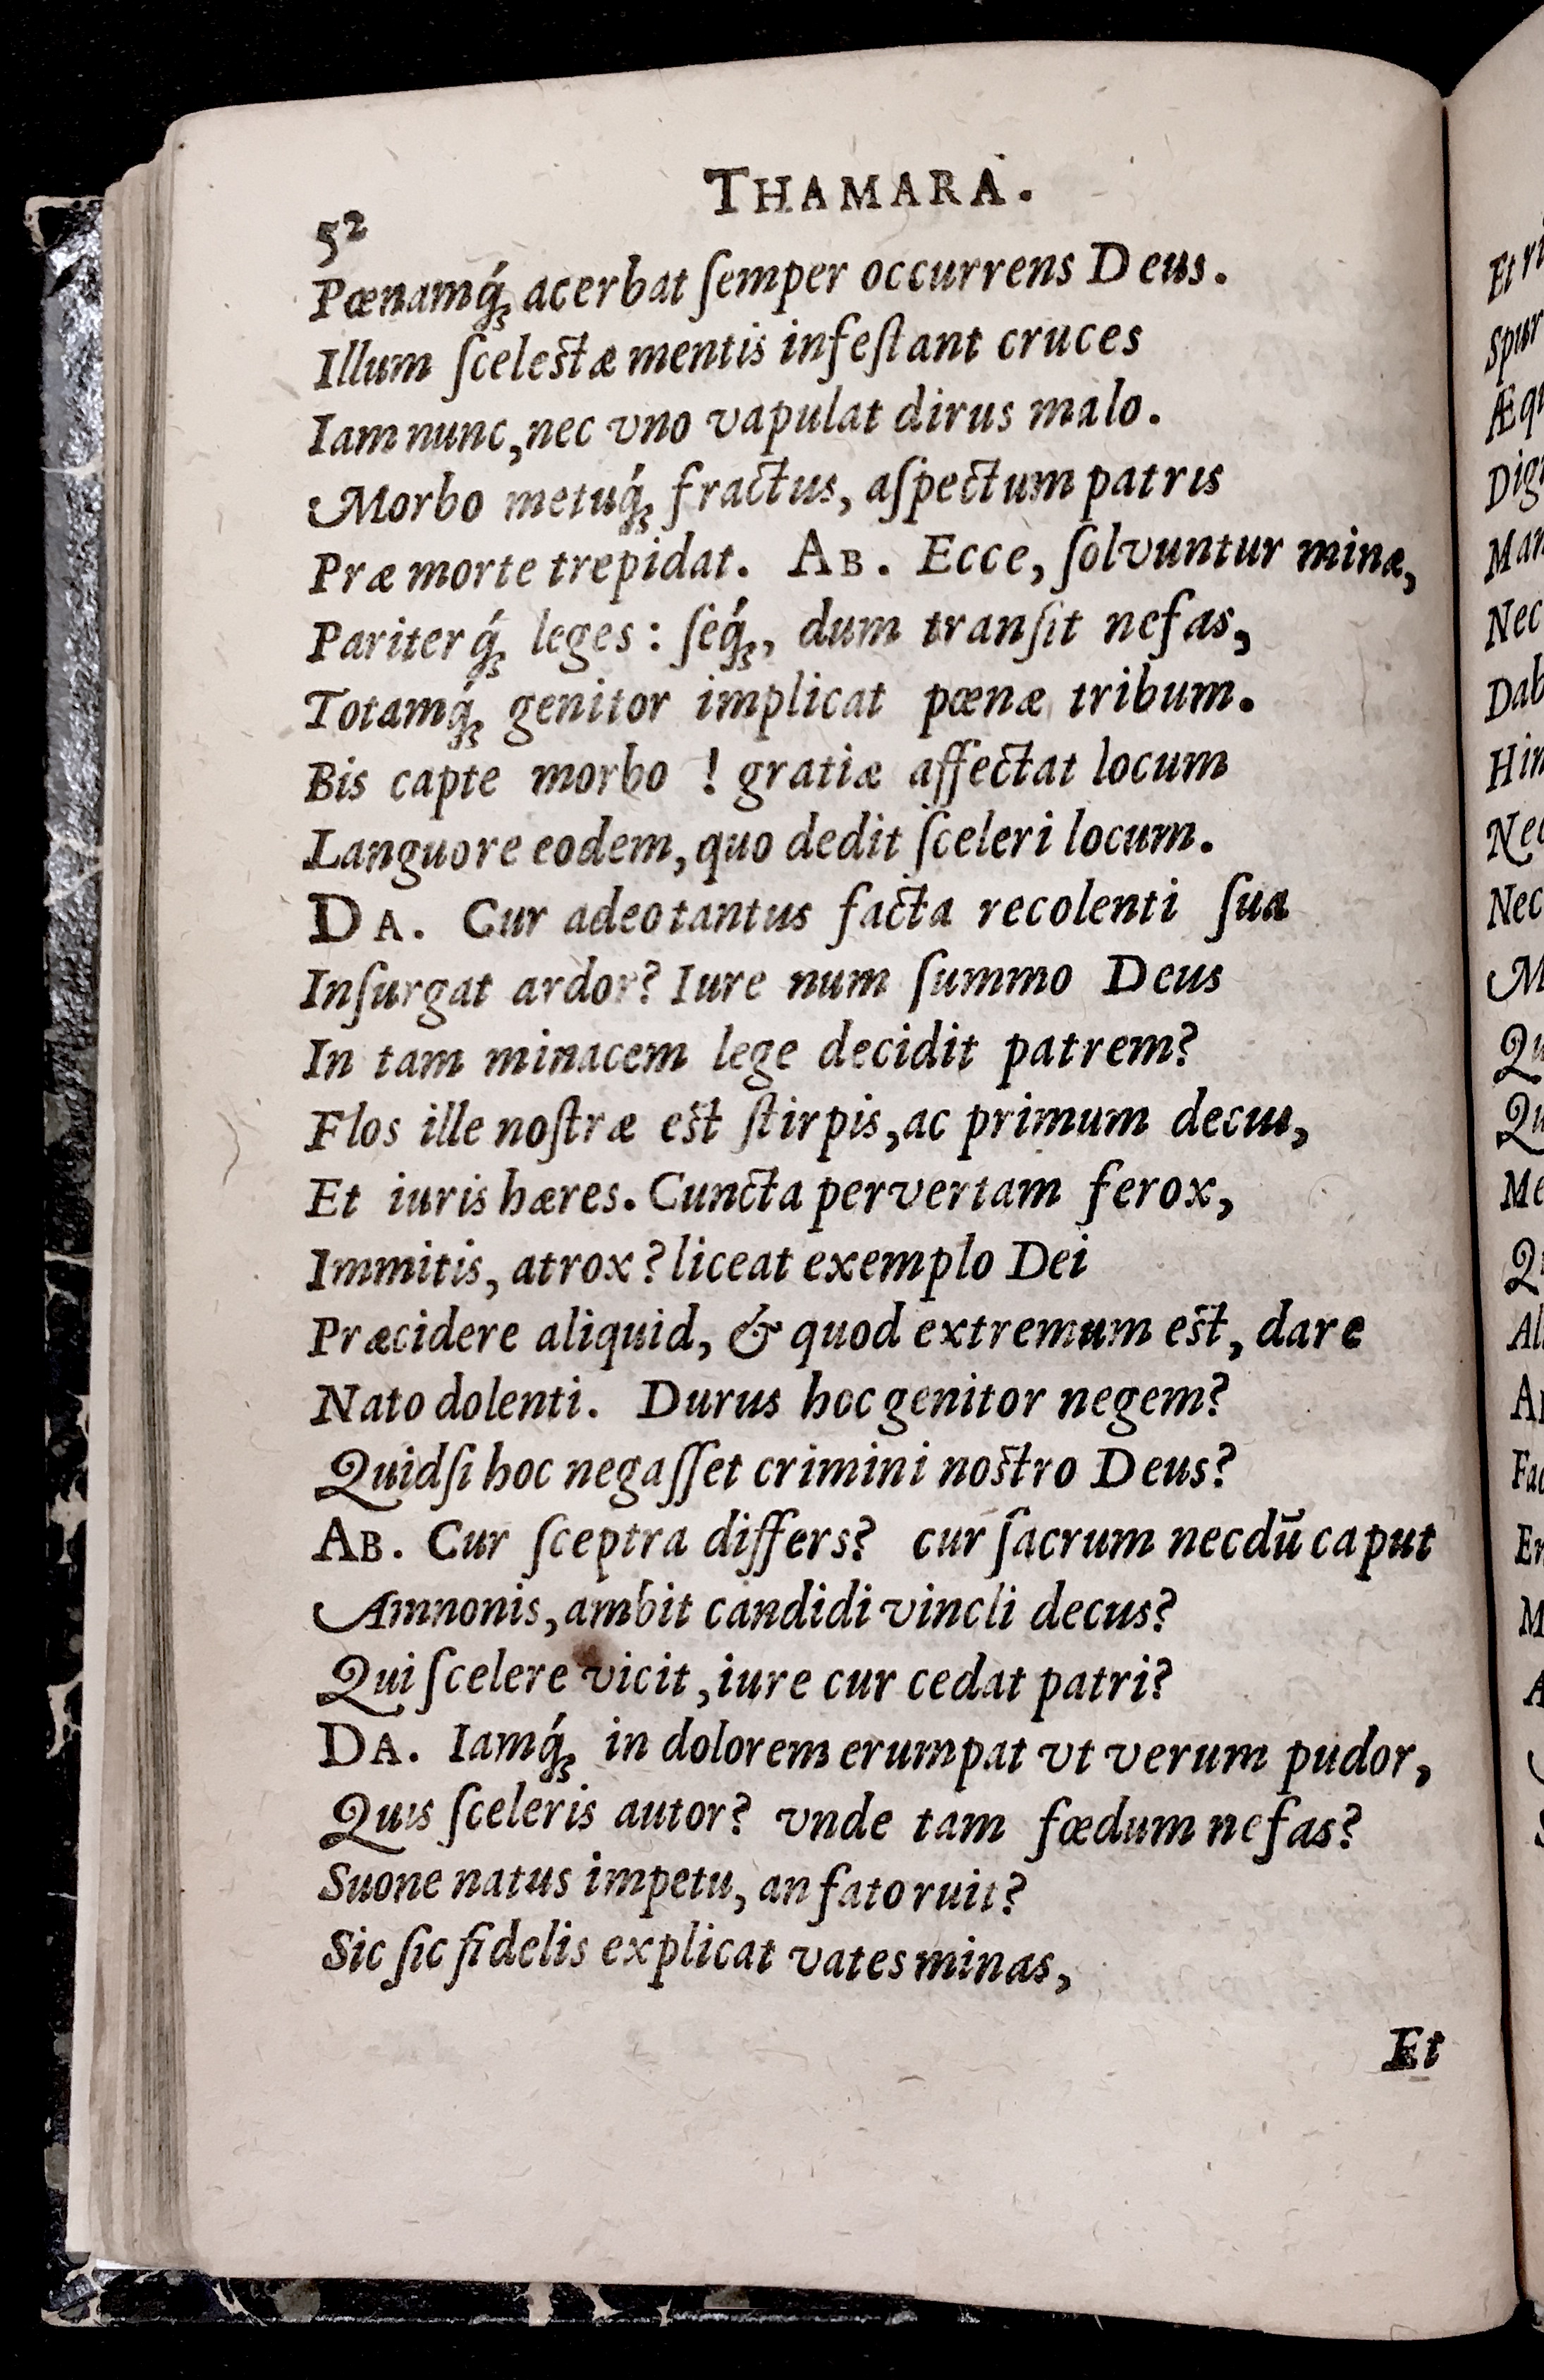 THAMARA.
52
Pœnamq́ꝫ acerbat ſemper occurrens Deus.
Illum ſceleſtæ mentis infeſtant cruces
Iam nunc, nec vno vapulat dirus malo.
Morbo metuq́ꝫ fractus, aſpectum patris
Præ morte trepidat. AB. Ecce, ſolvuntur minæ,
Pariterq́ꝫ leges: ſeq́ꝫ, dum tranſit nefas,
Totamq́ꝫ genitor implicat pœnæ tribum.
Bis capte morbo ! gratiæ affectat locum
Languore eodem, quo dedit ſceleri locum.
DA. Cur adeo tantus facta recolenti ſua
Inſurgat ardor? Iure num ſummo Deus
In tam minacem lege decidit patrem?
Flos ille noſtræ eſt ſtirpis, ac primum decus,
Et iuris hæres. Cuncta pervertam ferox,
Immitis, atrox? liceat exemplo Dei
Præcidere aliquid, & quod extremum eſt, dare
Nato dolenti. Durus hoc genitor negem?
Quidſi hoc negaſſet crimini noſtro Deus?
AB. Cur ſceptra differs? cur ſacrum necdū caput
Amnonis, ambit candidi vincli decus?
Qui ſcelere vicit, iure cur cedat patri?
DA. Iamq́ꝫ in dolorem erumpat vt verum pudor,
Quis ſceleris autor? vnde tam fœdum nefas?
Suone natus impetu, an fato ruit?
Sic ſic fidelis explicat vates minas,
Et